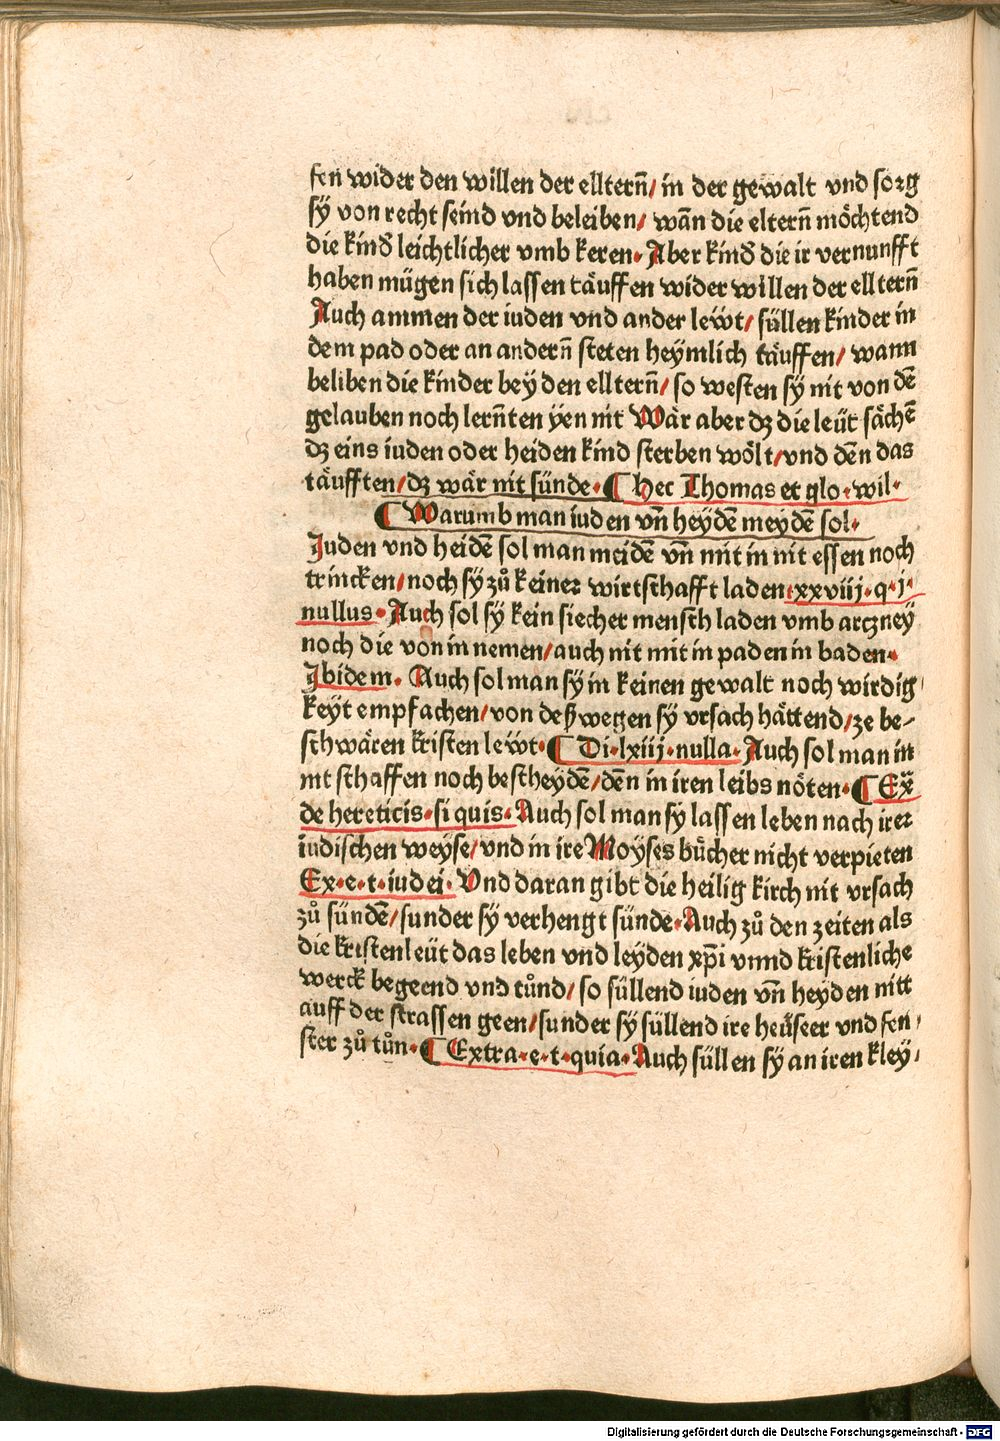 fen wider den willen der elltern̄/ in der gewalt vnd sorg
sÿ von recht seind vnd beleiben/ wañ die eltern̄ möchtend
die kind̄ leichtlicher vmb keren. Aber kind̄ die ir vernunfft
haben mügen sich lassen täuffen wider willen der elltern̄
Auch ammen der iuden vnd ander lewt/ süllen kinder in
dem pad oder an andern̄ steten heÿmlich täuffen/ wann
beliben die kinder beÿ den elltern̄/ so westen sÿ nit von dē
gelauben noch lern̄ten yen nit Wär aber dz die leüt sächē
dz eins iuden oder heiden kind sterben wölt/ vnd dēn das
täufften/ dz wär nit sünde. ¶ Hec Thomas et glo. wil.
¶ Warumb man iuden vn̄ heÿdē meydē sol.
Juden vnd heidē sol man meidē vn̄ mit in nit essen noch
trincken/ noch sÿ zů keiner wirtschafft laden. xxviij. q. j.
nullus. Auch sol sÿ kein siecher mensch laden vmb arczneÿ
noch die von in nemen/ auch nit mit in paden in baden.
Jbidem. Auch sol man sÿ in keinen gewalt noch wirdig
keyt empfachen/ von deß wegen sÿ vrsach hättend/ ze be-
schwären kristen lewt. ¶ Di. lxiij. nulla. Auch sol man in
nit schaffen noch bescheydē/ dēn in iren leibs nöten. ¶ Ex̄
de hereticis. si quis. Auch sol man sÿ lassen leben nach irer
iudischen weyse/ vnd in ire Moyses bücher nicht verpieten
Ex. e. t. iudei. Vnd daran gibt die heilig kirch nit vrsach
zů sündē/ sunder sÿ verhengt sünde. Auch zů den zeiten als
die kristen leüt das leben vnd leyden xp̄i vnnd kristenliche
werck begeend vnd tůnd/ so süllend iuden vn̄ heyden nitt
auff der strassen geen/ sunder sÿ süllend ire heüseer vnd fen
ster zů tůn. ¶ Extra. e. t. quia. Auch süllen sÿ an iren kley
Digitalisierung gefördert durch die Deutsche Forschungsgemeinschaft - DFG